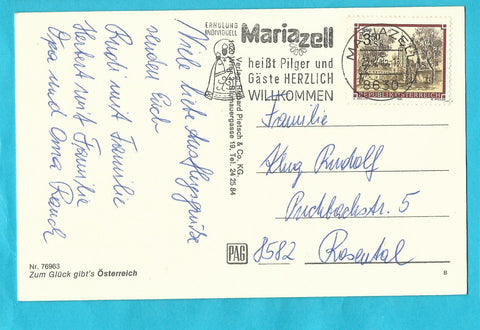 ERHOLUNG
INDIVIDUELL
Mariazell
heißt Pilger und
Gäste HERZLICH
WILLKOMMEN
MARIAZELL
8630
REPUBLIK ÖSTERREICH
Viele liebe Ausflugsgrüße
senden Euch
Rudi mit Familie
Herbert mit Familie
Opa und Oma Rauch
Verlag Richard Pietsch & Co. KG.
19, Tel. 24 25 84
Familie
Klug Rudolf
Puchbachstr. 5
8582 Rosental
PAG
Nr. 76963
Zum Glück gibt's Österreich
B